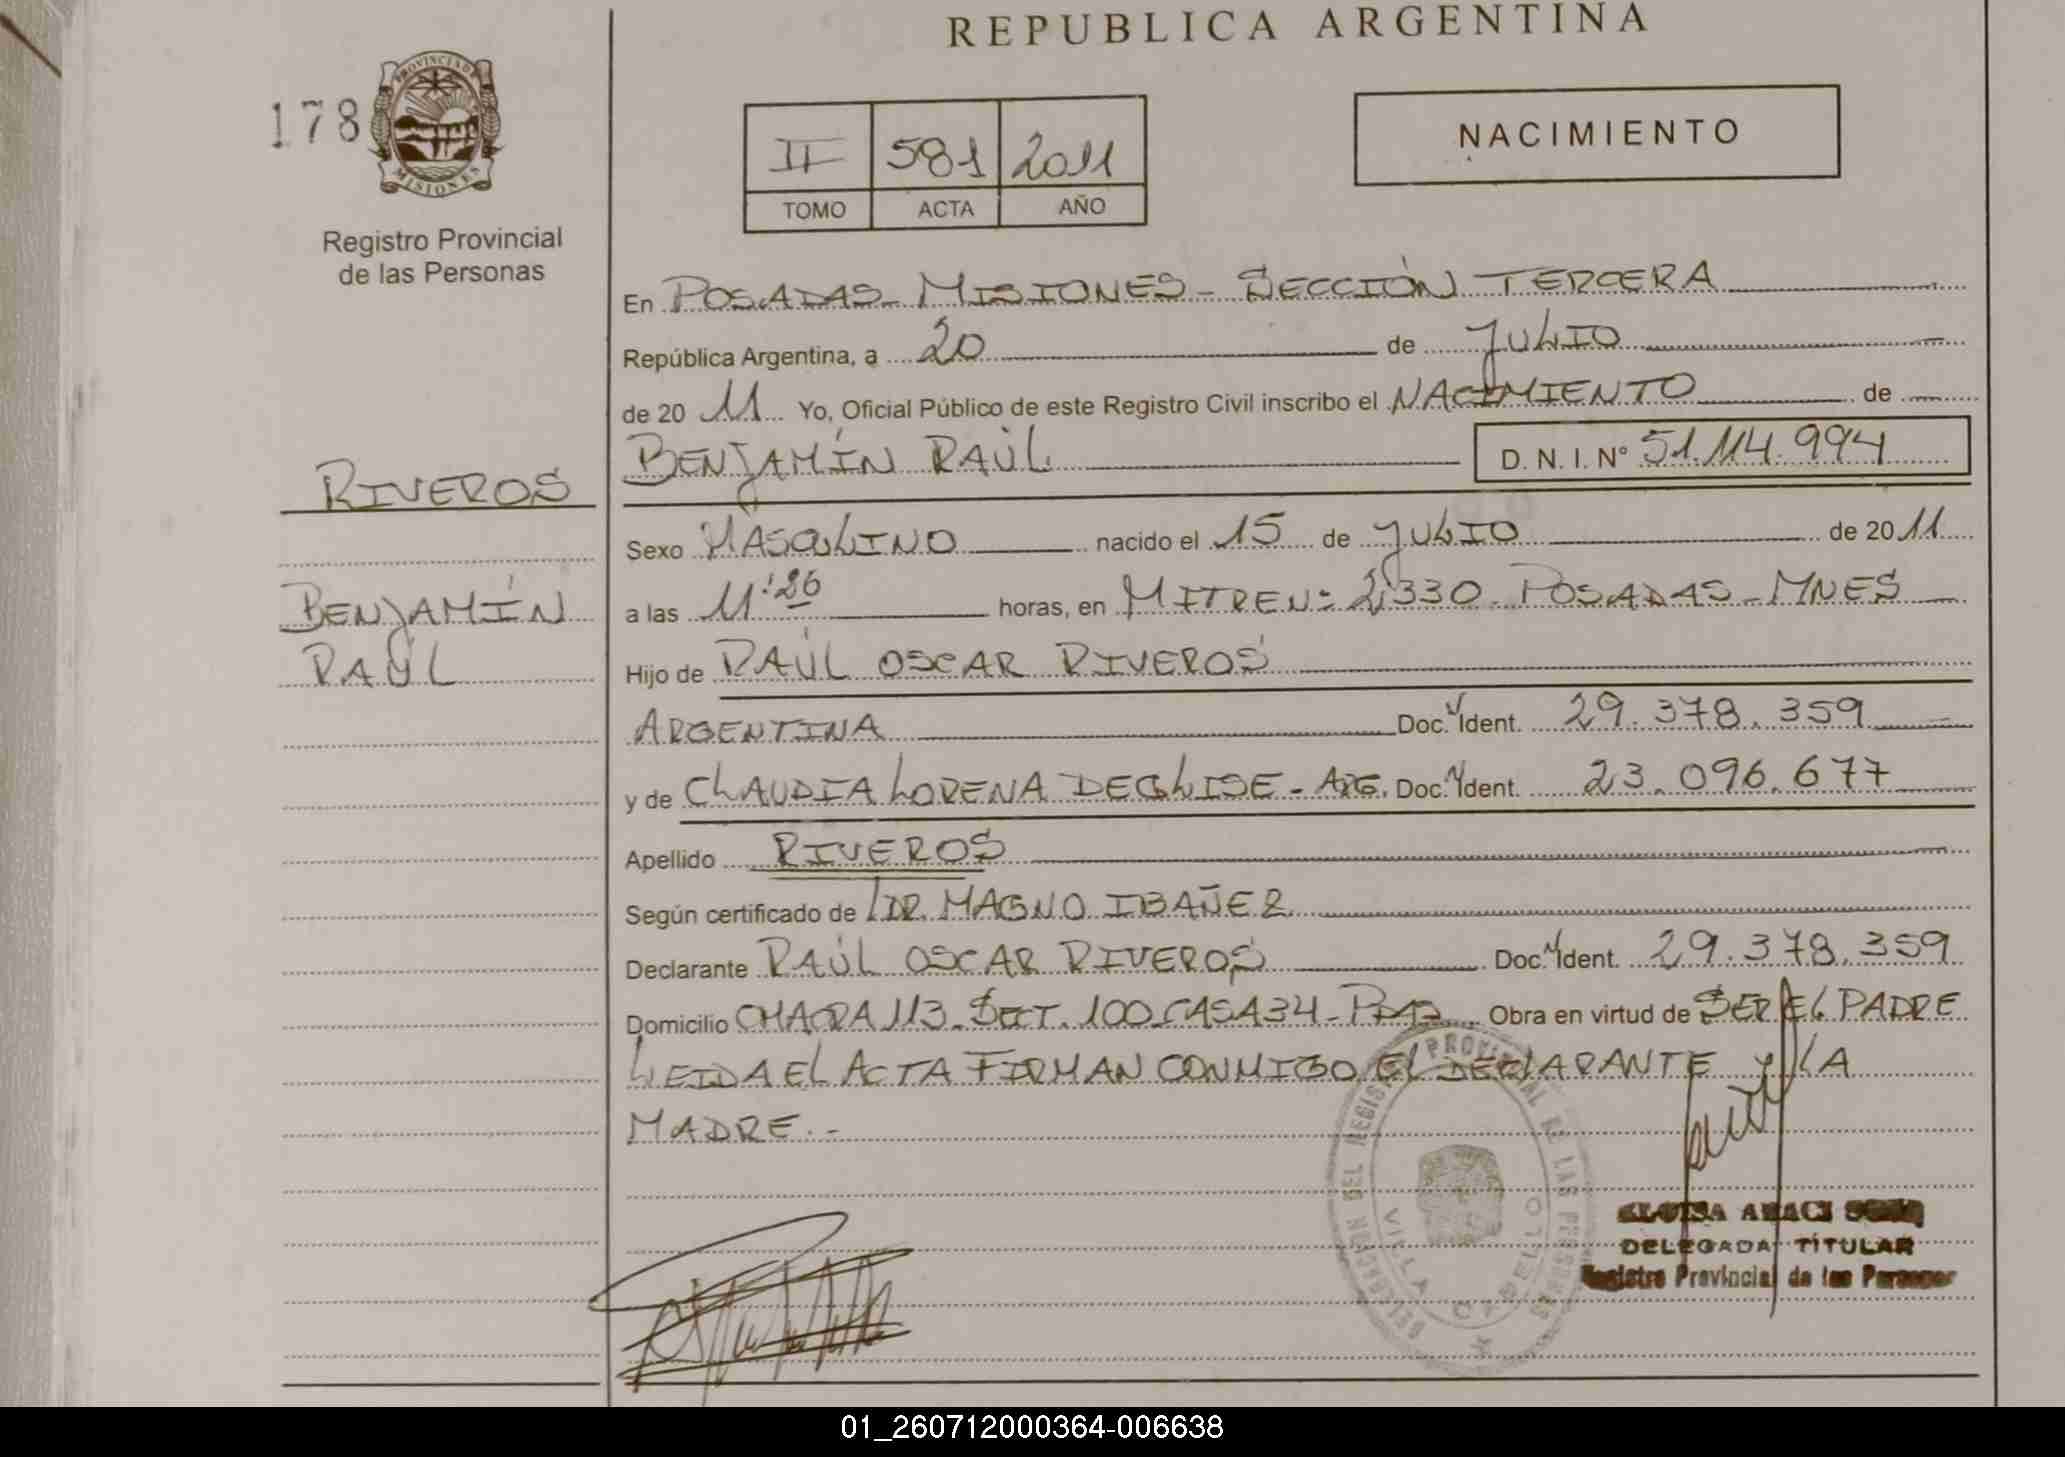 REPUBLICA ARGENTINA
178
PROVINCIA DE
MISIONES
Registro Provincial
de las Personas
II 581 2011
TOMO ACTA AÑO
NACIMIENTO
En POSADAS - MISIONES - SECCIÓN TERCERA
República Argentina, a 20 de JULIO
de 20 11 Yo, Oficial Público de este Registro Civil inscribo el NACIMIENTO de
BENJAMÍN RAÚL D. N. I. N° 51.114.994
RIVEROS
BENJAMÍN
RAÚL
Sexo MASCULINO nacido el 15 de JULIO de 20 11
a las 11:26 horas, en MITRE Nº 2330. POSADAS - MNES
Hijo de RAÚL OSCAR RIVEROS
ARGENTINA Doc. Ident. 29.378.359
y de CLAUDIA LORENA DEGLISE - ARG. Doc. Ident. 23.096.677
Apellido RIVEROS
Según certificado de DR. MAGNO IBAÑEZ
Declarante RAÚL OSCAR RIVEROS Doc. Ident. 29.378.359
Domicilio CHACRA 113 - 100 - CASA 34 - Obra en virtud de SER EL PADRE
LEIDA EL ACTA FIRMAN CONMIGO EL DECLARANTE Y LA
MADRE.-
DELEGACION DEL REGISTRO PROVINCIAL DE LAS PERSONAS
VILLA CABELLO
DELEGADA TITULAR
Registro Provincial de las Personas
01_260712000364-006638